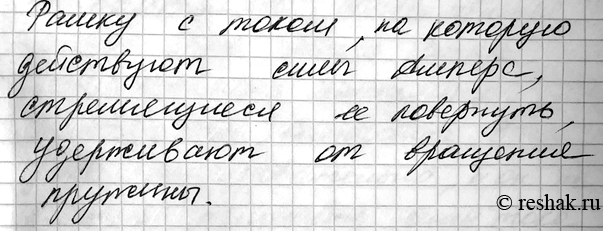 Рамку с током, на которую
действуют силы Ампера,
стремящиеся ее повернуть,
удерживают от вращения
пружины.
© reshak.ru